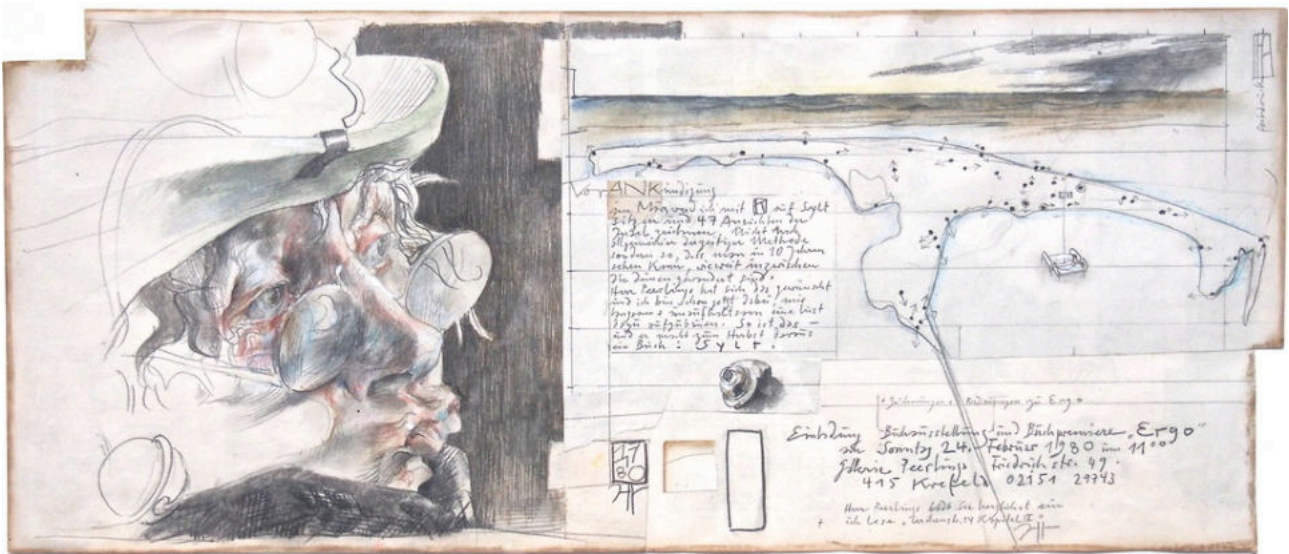 VorANKündigung
im März werd ich mit auf Sylt
sitzen und 47 Ansichten der
Insel zeichnen. Nicht nach
allgemeiner derzeitiger Methode
sondern so, daß man in 10 Jahren
sehen kann, wieweit inzwischen
die Dünen gewandert sind.
Herr Peerlings hat sich das gewünscht
und ich bin schon jetzt dabei, mir
eine Lust
dazu aufzubauen. So ist das –
und er macht zum Herbst daraus
ein Buch: Sylt.
+ Zeichnungen & Radierungen zu Ergo +
Einladung Buchausstellung und Buchpremiere „Ergo“
am Sonntag 24. Februar 1980 um 11⁰⁰
Galerie Peerlings Friedrichstr. 49.
415 Krefeld 02151 29743
Herr Peerlings lädt Sie herzlichst ein
+ ich lese
17
1
80